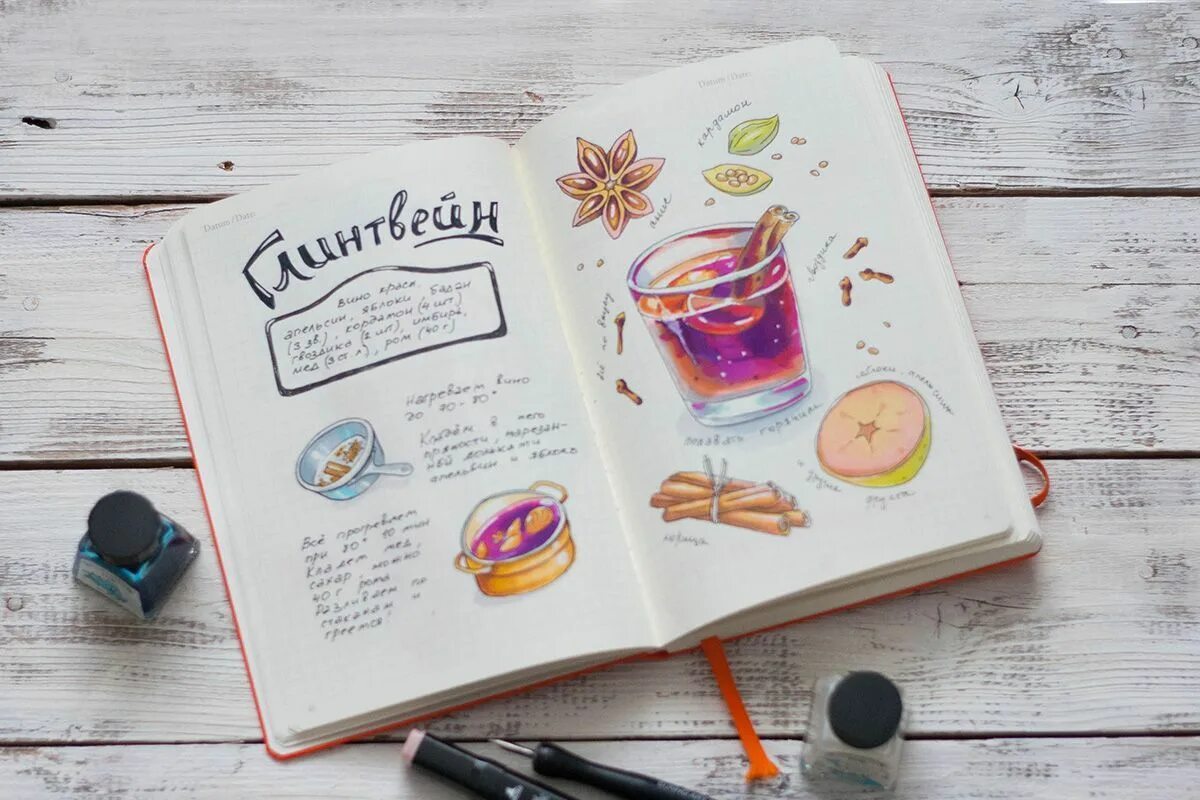 Datum / Date:
Глинтвейн
вино красн.
апельсин, яблоки, бадан
(3 зв.), кордамон (4 шт)
гвоздика (2 шт), имбирь,
мед (3 ст. л), ром (40 г)
Нагреваем вино
до 70-80°
Кладём в него
пряности, нарезан-
ный дольками
апельсин и яблоко
Всё прогреваем
при 80° 10 мин
Кладем мед,
сахар, можно
40 г рома
Разливаем по
стаканам и
греемся!
Datum / Date:
кардамон
анис
гвоздика
всё по вкусу
яблоки, апельсины
подавать горячим
и другие
фрукты
корица